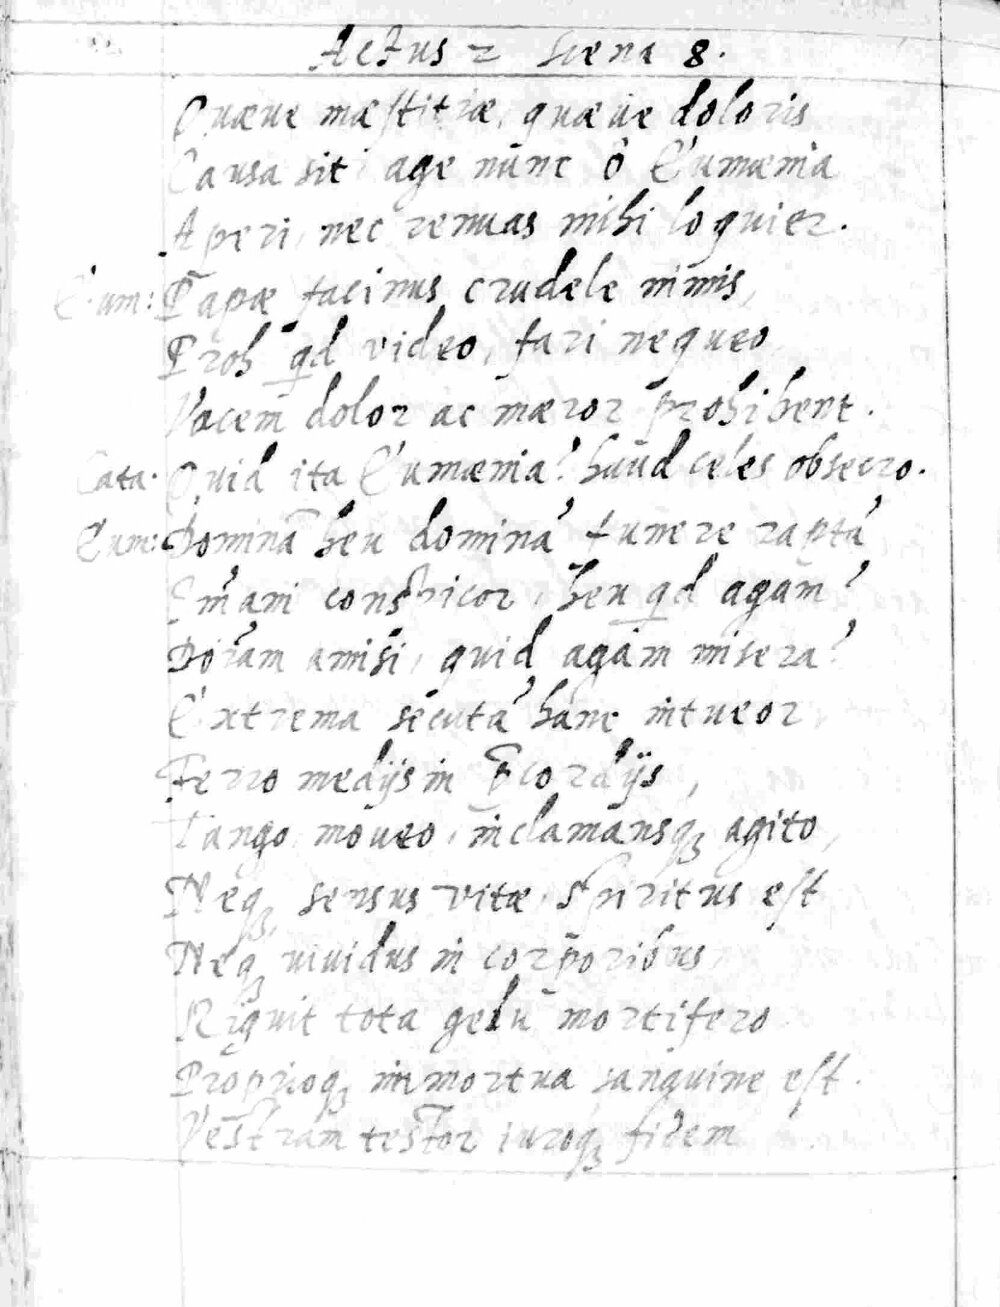 Actus 2 Scena 8.
Quæue mæstitiæ, quæue doloris
Causa sit age nunc ô Eumænia
Aperi, nec renuas mihi loquier.
Eum: Papæ facinus crudele nimis,
Proh qd video, fari nequeo
Vocem dolor ac mæror prohibent.
Cata. Quid ita Eumænia? haud celes obsecro.
Eum: Dominā heu dominā funere raptā
conspicor, heu qd agam?
amisi, quid agam misera?
Extrema secutā hanc intueor
Ferro medijs in p̄cordijs,
Tango, moueo, inclamansq; agito,
Neq; sensus vitæ, spiritus est
Neq; viuidus in corporibus
Riguit tota gelu mortifero
Proprioq; immortua sanguine est.
Vestram testor iuroq; fidem